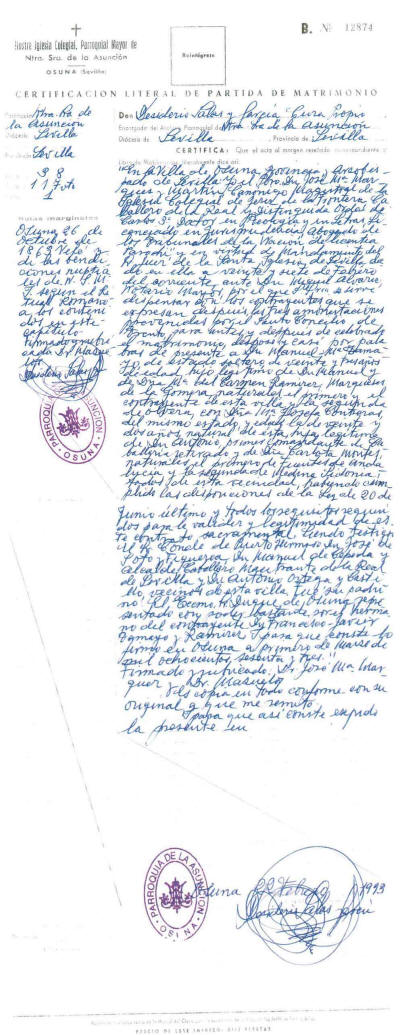 B. Nº 12874
Iltre. Iglesia Colegial, Parroquial Mayor de
Ntra. Sra. de la Asunción
OSUNA (Sevilla)
Reintégrese
CERTIFICACION LITERAL DE PARTIDA DE MATRIMONIO
Parroquia Ntra. Sra de
la Asunción
Diócesis Sevilla
Provincia Sevilla
38
117 vto
1
Notas marginales
Osuna 26 de
Octubre de
1863 Velé y
di las bendi
ciones nupcia
les de N. S. M.
I. según el Ri
tual Romano
a los conteni
dos en este
capítulo.
Firmado y rubri
cado Dr. Masue
los.
Desiderio Salas
PARROQUIA DE LA ASUNCION
· OSUNA ·
Don Desiderio Salas y García Cura Propio
Encargado del Archivo Parroquial de Ntra Sra de la Asunción
Diócesis de Sevilla, Provincia de Sevilla
CERTIFICA: Que el acta al margen reseñada, correspondiente al
Libro de Matrimonios, literalmente dice así:
"En la Villa de Osuna, Provincia y Arzobis
pado de Sevilla Yo el Pbro. Dr. José Mª Mar
quez y Martín Canónigo Magistral de la
Iglesia Colegial de Jerez de la Frontera, Ca
ballero de la Real y Distinguida Orden de
Carlos 3º, Doctor en Teología y
licenciado en Jurisprudencia, Abogado de
los Tribunales de la Nación de licentia
Parochi, y en virtud de Mandamiento del
de la Santa Iglesia de Sevilla da
do en ella a veinte y siete de Febrero
del corriente ante Don Miguel Alvarez,
Notario Mayor, por el que se sirve
dispensar con los contrayentes que se
expresan después las tres amonestaciones
prevenidas por el Santo Concilio de
Trento, para antes y después de celebrado
el matrimonio, desposé y casé por pala
bras de presente a Dn Manuel Mª Tama
yo, de estado soltero, de veinte y tres años
de edad, hijo legítimo de Dn Manuel y
de Dña Mª del Carmen Ramirez, Marqueses
de la Gomera, naturales el primero y el
contrayente de esta villa y la segunda
de Olvera, con Dña Mª Josefa Contreras,
del mismo estado, y edad la de veinte y
dos años, natural de ésta, hija legítima
de Dn Antonio, primer Comandante de Ca
ballería retirado y de Dña Carlota Montes,
naturales el primero de Fuentes de Anda
lucía y la segunda de Medina Sidonia,
todos de esta vecindad, habiendo cum
plido las disposiciones de la Ley de 20 de
Junio último y todos los requisitos requeri
dos para la validez y legitimidad de es
te contrato sacramental, siendo testigos
el Sr Conde de Puerto Hermoso Dn José de
Soto y Figueroa, Dn Manuel de Cepeda y
Alcalde, Caballero Maestrante de la Real
de Sevilla y Dn Antonio Ortega y Casti
llo, vecinos de esta villa, fue su padri
no el Excmo. Sr. Duque de Osuna repre
sentado con poder bastante por el herma
no del contrayente Dn Francisco Javier
Tamayo y Ramirez. Y para que conste lo
firmo en Osuna a primero de Marzo de
mil ochocientos sesenta y tres."
Firmado y rubricado. Dr. José Mª Mar
quez y Dr. Masuelos.
Es copia en todo conforme con su
original a que me remito.
Y para que así conste expido
la presente en
Osuna 22 Febrero 1993
Desiderio Salas García
PARROQUIA DE LA ASUNCION
· OSUNA ·